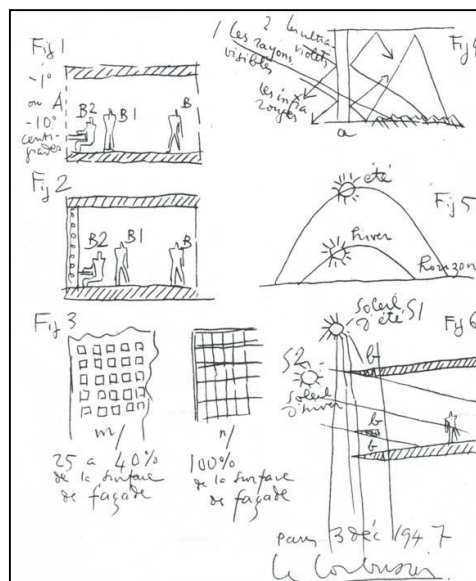 Fig 1
-1°
ou A
-10°
centi-
grades
B2 B1 B
Fig 2
B2 B1 B
Fig 3
m/
25 a 40%
de la surface
de façade
n/
100%
de la surface
de façade
1 les rayons
visibles
2 les ultra-
violets
les infra
rouges
a
Fig
été
hiver
horizon
Fig 5
Fig 6
soleil
d'été S1
S2
soleil
d'hiver
b
b
b
paris 3 déc 1947
Le Corbusier